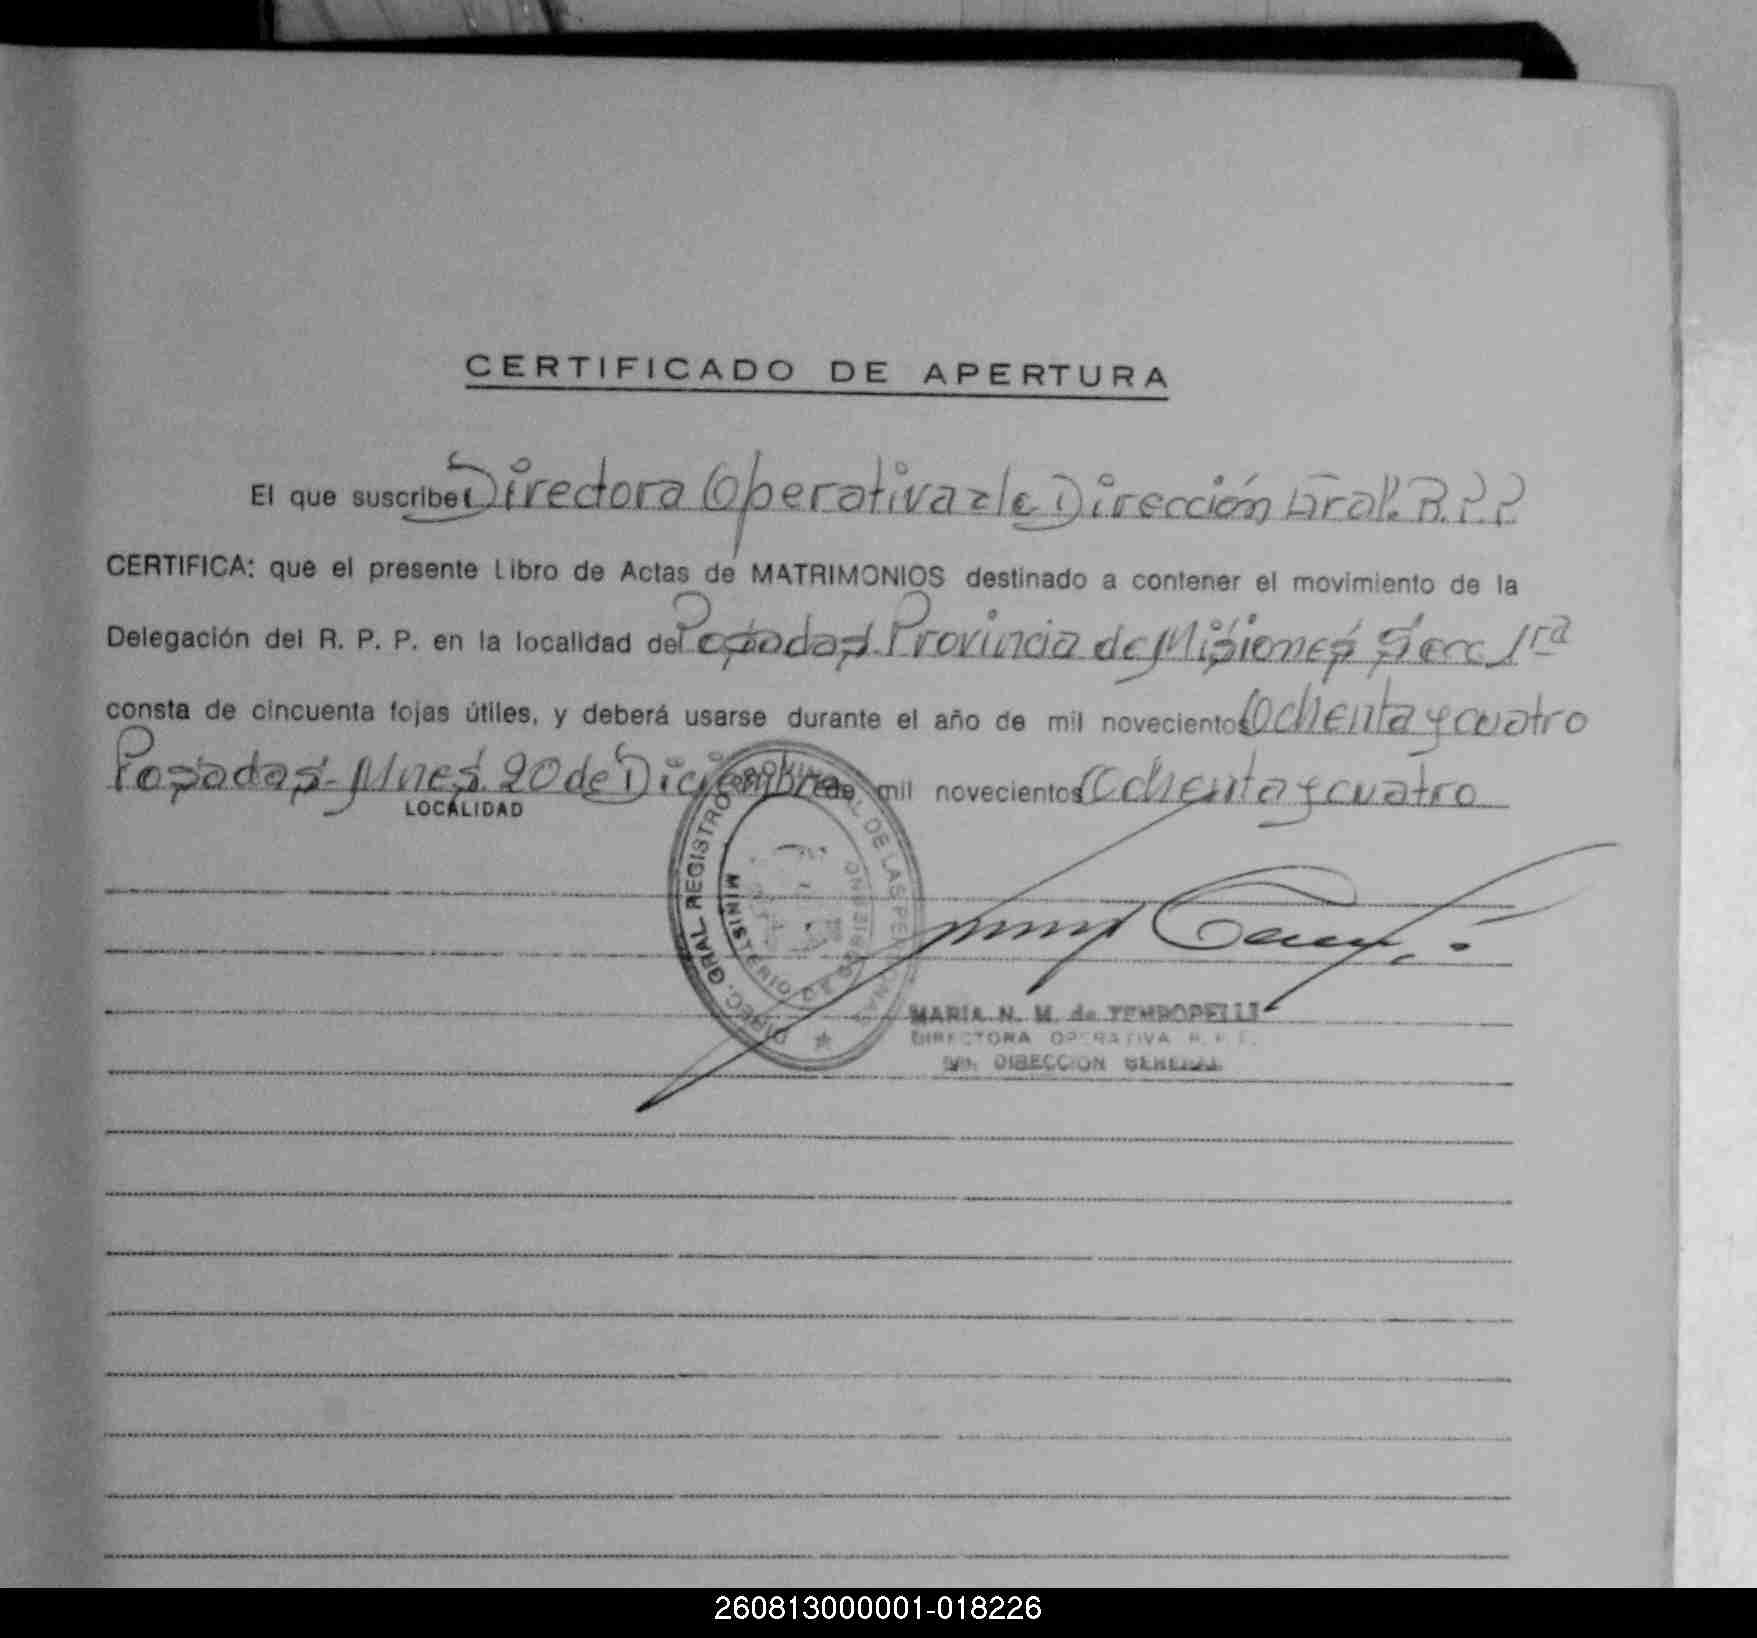 CERTIFICADO DE APERTURA
El que suscribe Directora Operativa de Dirección Gral. R.P.P.
CERTIFICA: que el presente Libro de Actas de MATRIMONIOS destinado a contener el movimiento de la
Delegación del R. P. P. en la localidad de Posadas Provincia de Misiones Secc 1ra
consta de cincuenta fojas útiles, y deberá usarse durante el año de mil novecientos Ochenta y cuatro
Posadas Mnes. 20 de Diciembre de mil novecientos Ochenta y cuatro
LOCALIDAD
DIREC. GRAL. REGISTRO PROVINCIAL DE LAS PERSONAS
MINISTERIO DE GOBIERNO
MARIA N. M. de TEMPORELLI
DIRECTORA OPERATIVA R. P. P.
DIRECCION GENERAL
260813000001-018226